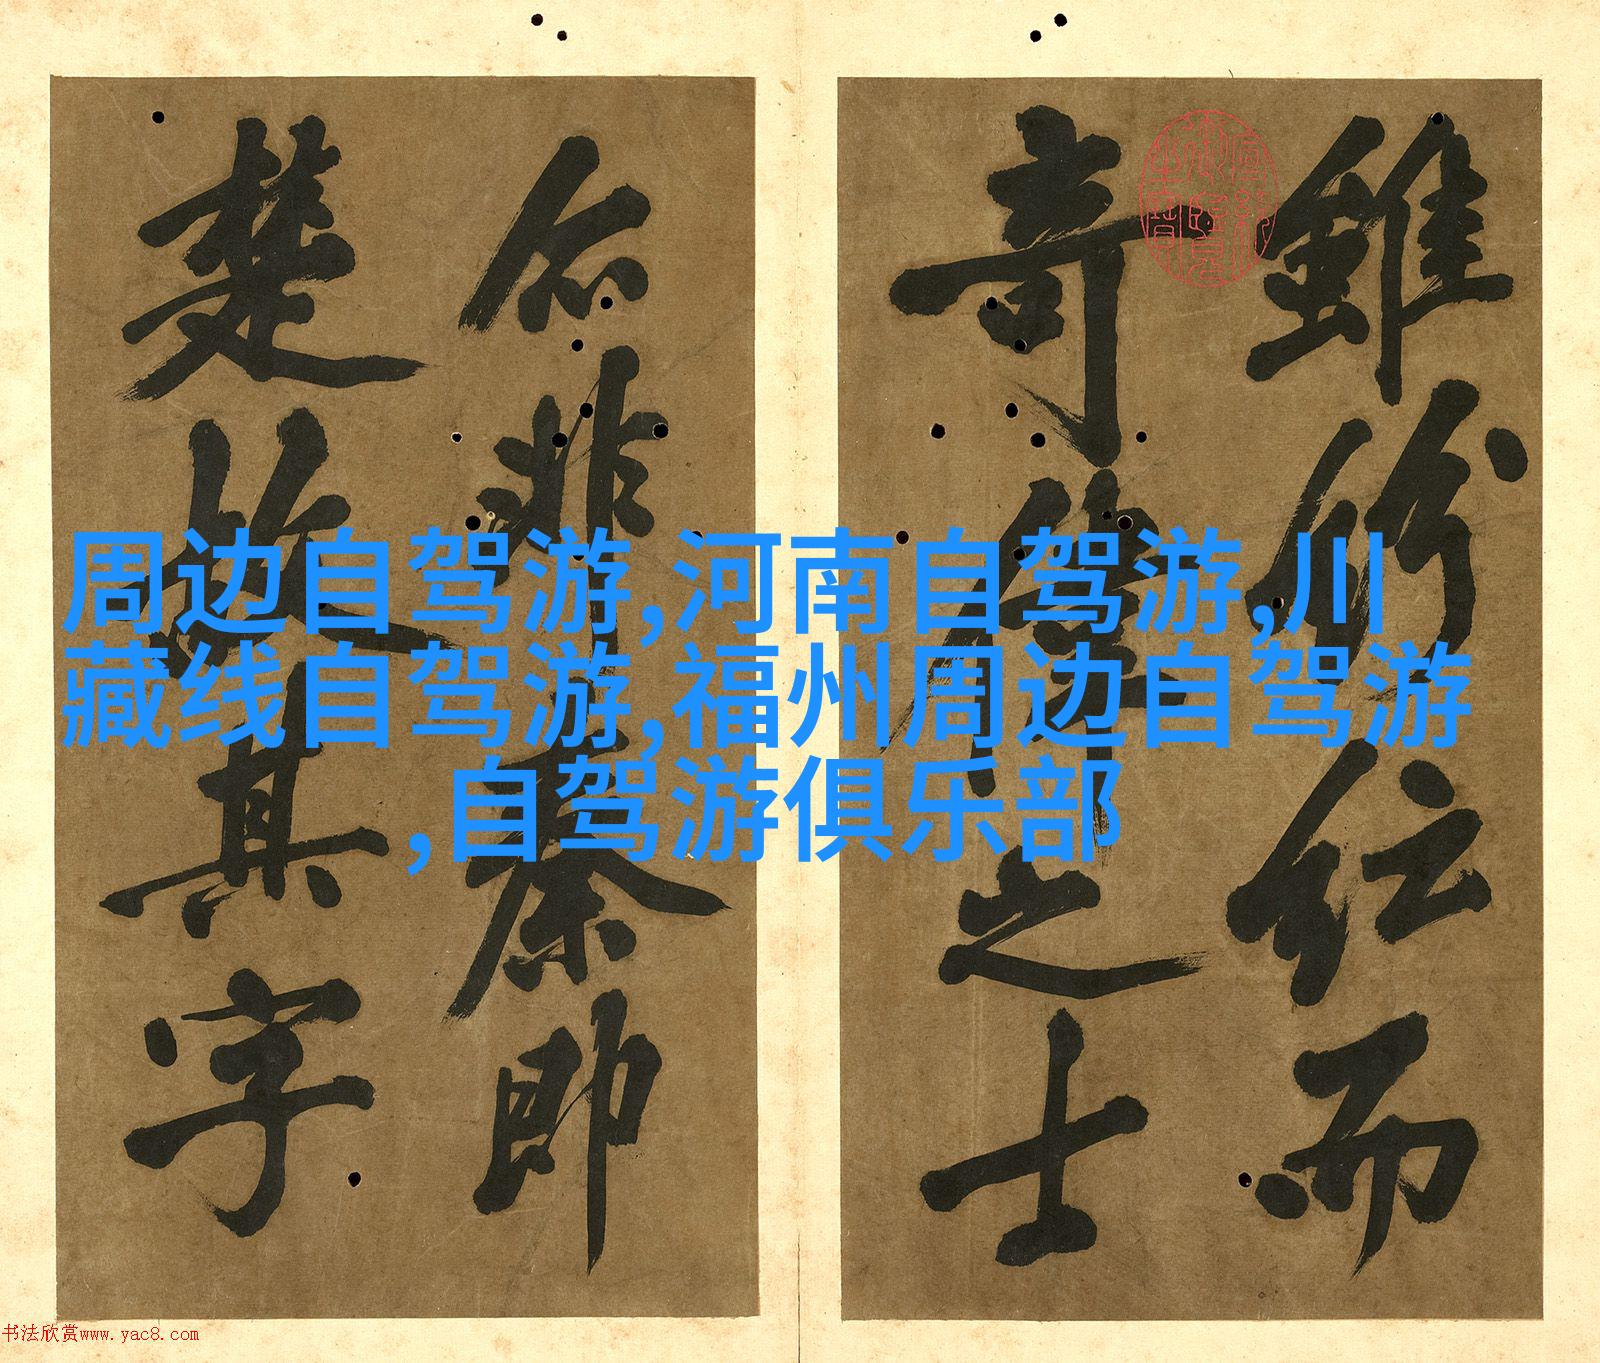 周边自驾游,河南自驾游,川
藏线自驾游,福州周边自驾游
,自驾游俱乐部
雖所仕而
奇偉之士
非秦即
楚故其字
书法欣赏www.yac8.com